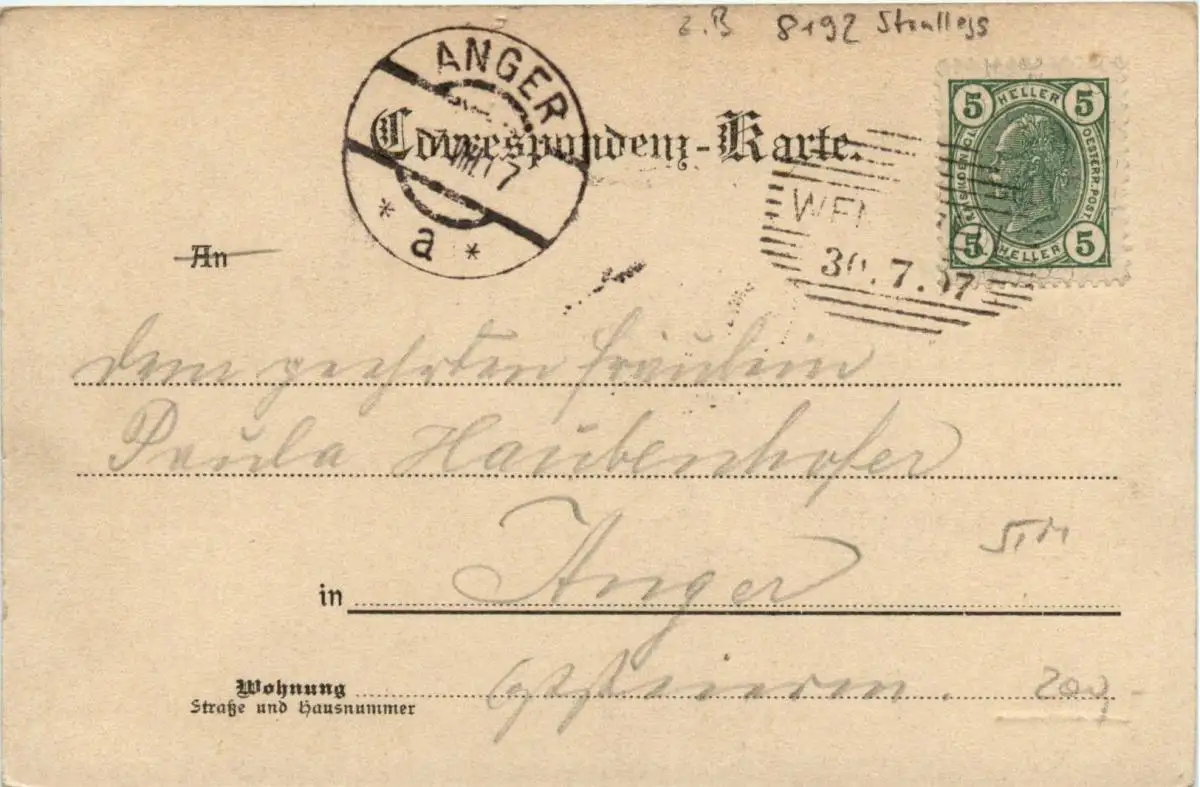 z.B 8192 Strallegg
ANGER
VII 07
* a *
Correspondenz-Karte.
5 HELLER 5
OESTERR. POST
5 HELLER 5
WEN
30.7.07
An
dem geehrten Fräulein
Paula Haubenhofer
in Anger
STM
Wohnung
Straße und Hausnummer